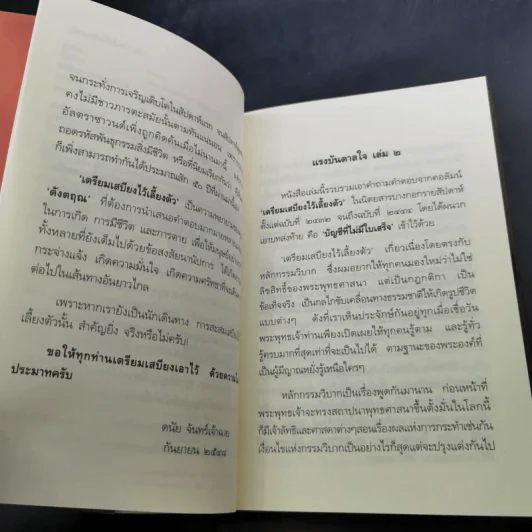 จนกระทั่งการเจริญเติบโตในสัปดาห์แรก
คงไม่มีชาวภารตะสมัยนั้นตามทันแน่นอน
อัลตราซาวนด์เพิ่งถูกคิดค้นเมื่อไม่นานมานี้
ถอดรหัสพันธุกรรมสิ่งมีชีวิต หรือที่นิยมเรียกกันว่า
ก็เพิ่งสามารถทำกันได้ประมาณสัก ๕๐ ปีที่ผ่านมา
'เตรียมเสบียงไว้เลี้ยงตัว' เป็นความพยายาม
'ดังตฤณ' ที่ต้องการนำเสนอคำตอบมากมาย
ในการเกิด การมีชีวิต และการตาย เพื่อให้มนุษย์
ทั้งหลายที่ยังเต็มไปด้วยข้อสงสัยนานัปการ ได้เกิด
กระจ่างแจ้ง เกิดความมั่นใจ เกิดความศรัทธาที่จะ
ต่อไปในเส้นทางอันยาวไกล
เพราะหากเรายังเป็นนักเดินทาง การสะสมเสบียง
เลี้ยงตัวนั้น สำคัญยิ่ง จริงหรือไม่ครับ!
ขอให้ทุกท่านเตรียมเสบียงเอาไว้ ด้วยความไม่
ประมาทครับ
ดนัย จันทร์เจ้าฉาย
กันยายน ๒๕๔๘
แรงบันดาลใจ เล่ม ๒
หนังสือเล่มนี้รวบรวมเอาคำถามคำตอบจากคอลัมน์
'เตรียมเสบียงไว้เลี้ยงตัว' ในนิตยสารบางกอกรายสัปดาห์
ตั้งแต่ฉบับที่ ๒๔๓๒ จนถึงฉบับที่ ๒๔๔๔ โดยได้ผนวก
เอาบทส่งท้าย คือ 'บัญชีที่ไม่มีใบเสร็จ' เข้าไว้ด้วย
'เตรียมเสบียงไว้เลี้ยงตัว' เกี่ยวเนื่องโดยตรงกับ
หลักกรรมวิบาก ซึ่งผมอยากให้ทุกคนมองใหม่ว่าไม่ใช่
ลิขสิทธิ์ของพระพุทธศาสนา แต่เป็นกฎกติกา เป็น
ข้อเท็จจริง เป็นกลไกขับเคลื่อนทางธรรมชาติให้เกิดรูปชีวิต
แบบต่างๆ ดังที่เราเห็นประจักษ์กันอยู่ทุกเมื่อเชื่อวัน
พระพุทธเจ้าท่านเพียงเปิดเผยให้ทุกคนรู้ตาม และรู้ทั่ว
รู้ครบมากที่สุดเท่าที่จะเป็นไปได้ ตามฐานะของพระองค์ที่
เป็นผู้มีญาณหยั่งรู้เหนือใครๆ
หลักกรรมวิบากเป็นเรื่องพูดกันมานาน ก่อนหน้าที่
พระพุทธเจ้าจะทรงสถาปนาพุทธศาสนาขึ้นตั้งมั่นในโลกนี้
ก็มีเจ้าลัทธิและศาสดาต่างๆสอนเรื่องผลแห่งการกระทำเช่นกัน
เงื่อนไขแห่งกรรมวิบากเป็นอย่างไรก็สุดแต่จะปรุงแต่งกันไป